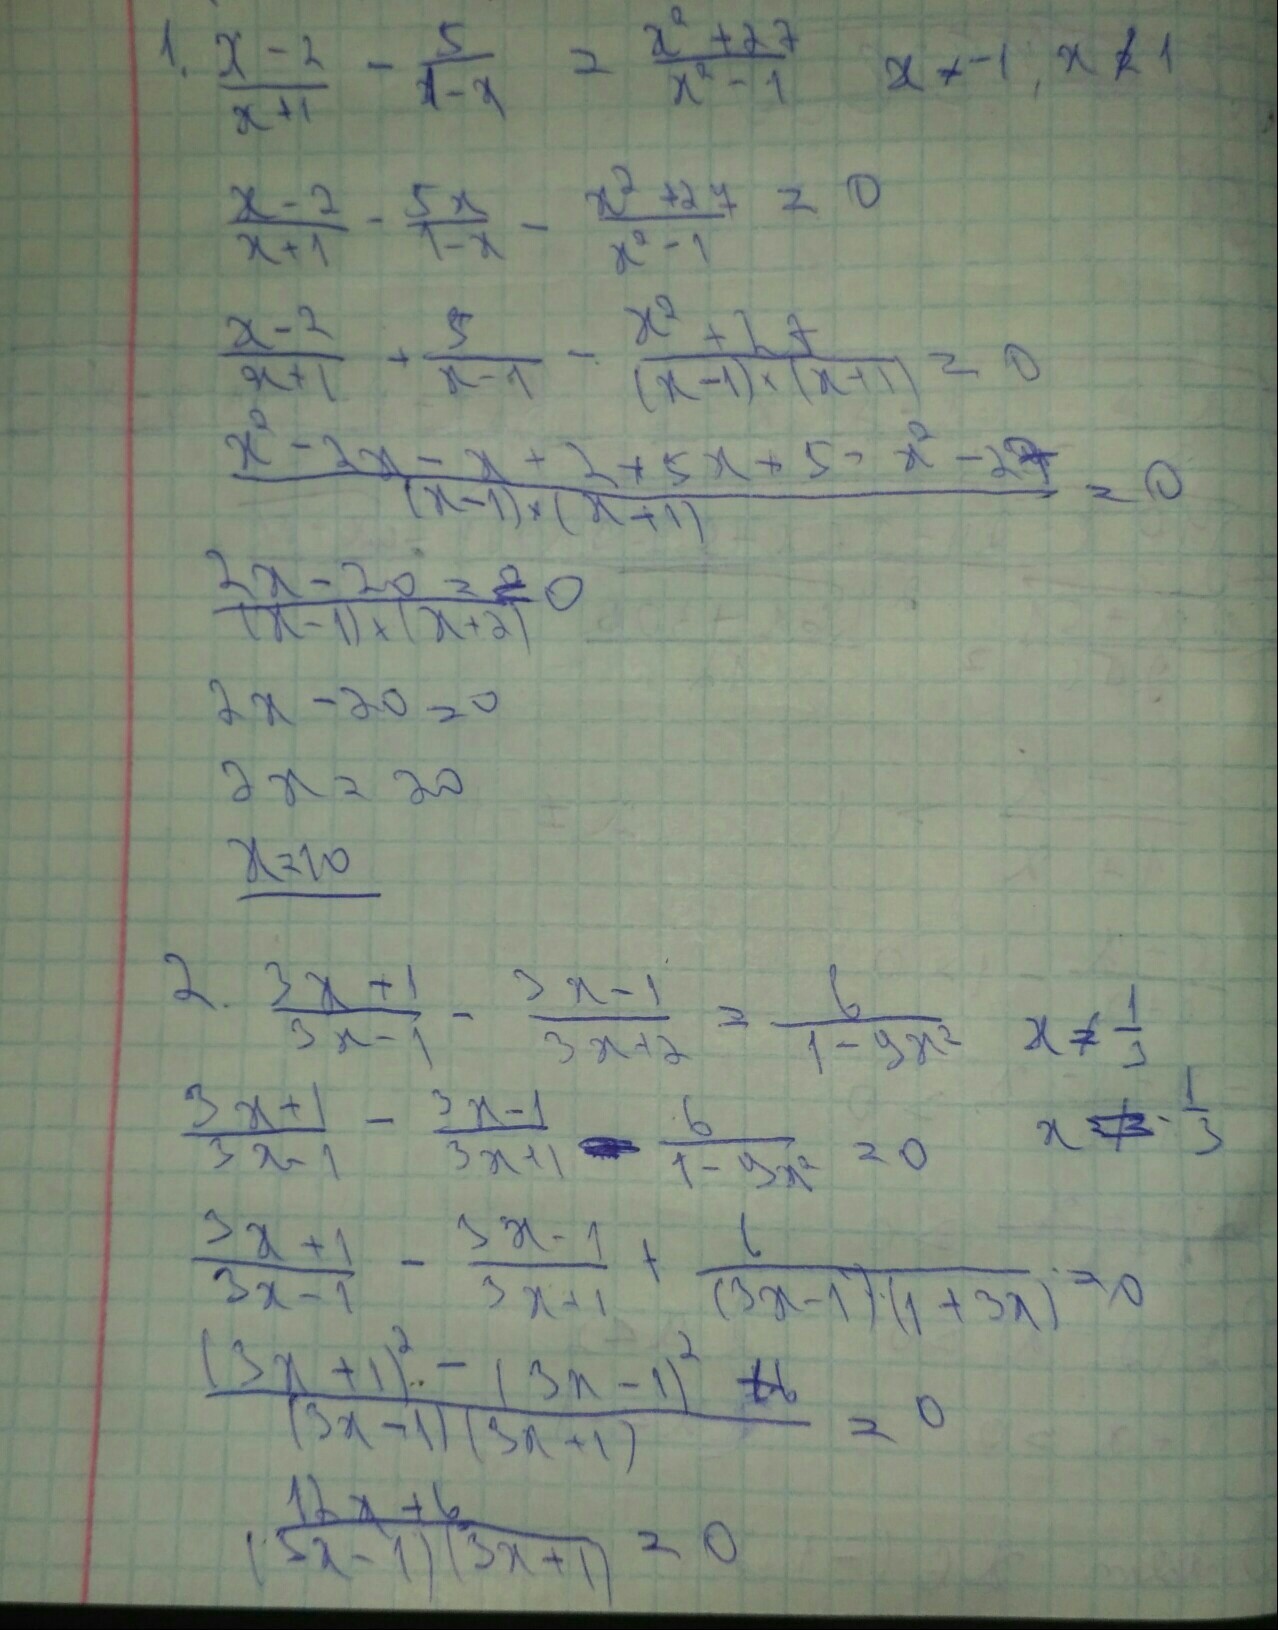 1. (x-2)/(x+1) - 5/(1-x) = (x²+27)/(x²-1) x≠-1, x≠1
(x-2)/(x+1) - 5x/(1-x) - (x²+27)/(x²-1) = 0
(x-2)/(x+1) + 5/(x-1) - (x²+27)/((x-1)×(x+1)) = 0
(x²-2x-x+2+5x+5-x²-27)/((x-1)×(x+1)) = 0
(2x-20)/((x-1)×(x+2)) = 0
2x-20=0
2x=20
x=10
2. (3x+1)/(3x-1) - (3x-1)/(3x+2) = 6/(1-9x²) x≠1/3
(3x+1)/(3x-1) - (3x-1)/(3x+1) - 6/(1-9x²) = 0 x≠-1/3
(3x+1)/(3x-1) - (3x-1)/(3x+1) + 6/((3x-1)·(1+3x)) = 0
((3x+1)²-(3x-1)²+6)/((3x-1)(3x+1)) = 0
(12x+6)/((3x-1)(3x+1)) = 0